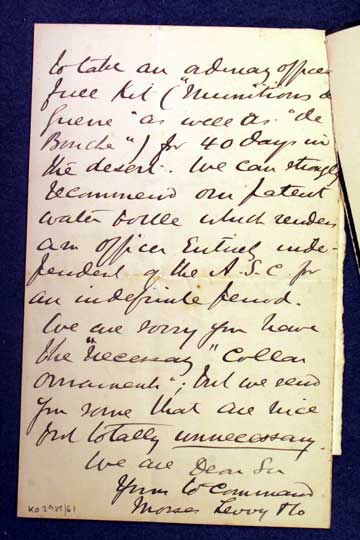 to take an ordinary officer
full Kit ("Munitions de
Guerre" as well as "de
Bouche") for 40 days in
the desert. We can strongly
recommend our patent
water bottle which renders
an officer Entirely inde-
pendent of the A.S.C. for
an indefinite period.
We are sorry you have
the "necessary" Collar
ornaments"; but we send
you some that are nice
but totally unnecessary.
We are Dear Sir
Yours to Command
Moses Levvy & Co
KO 2981/61